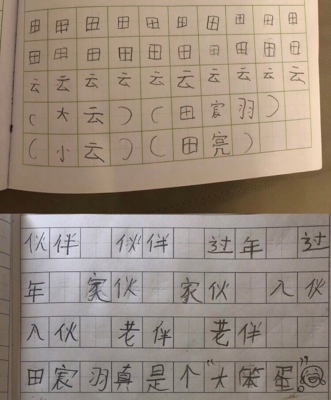 田 田 田 田 田 田 田 田 田 田
田 田 田 田 田 田 田 田 田 田
云 云 云 云 云 云 云 云 云 云
（ 大 云 ）（ 田 宸 羽 ）
（ 小 云 ）（ 田 亮 ）
伙伴 伙伴 过年 过
年 家伙 家伙 入伙
入伙 老伴 老伴
田宸羽真是个“大笨蛋”